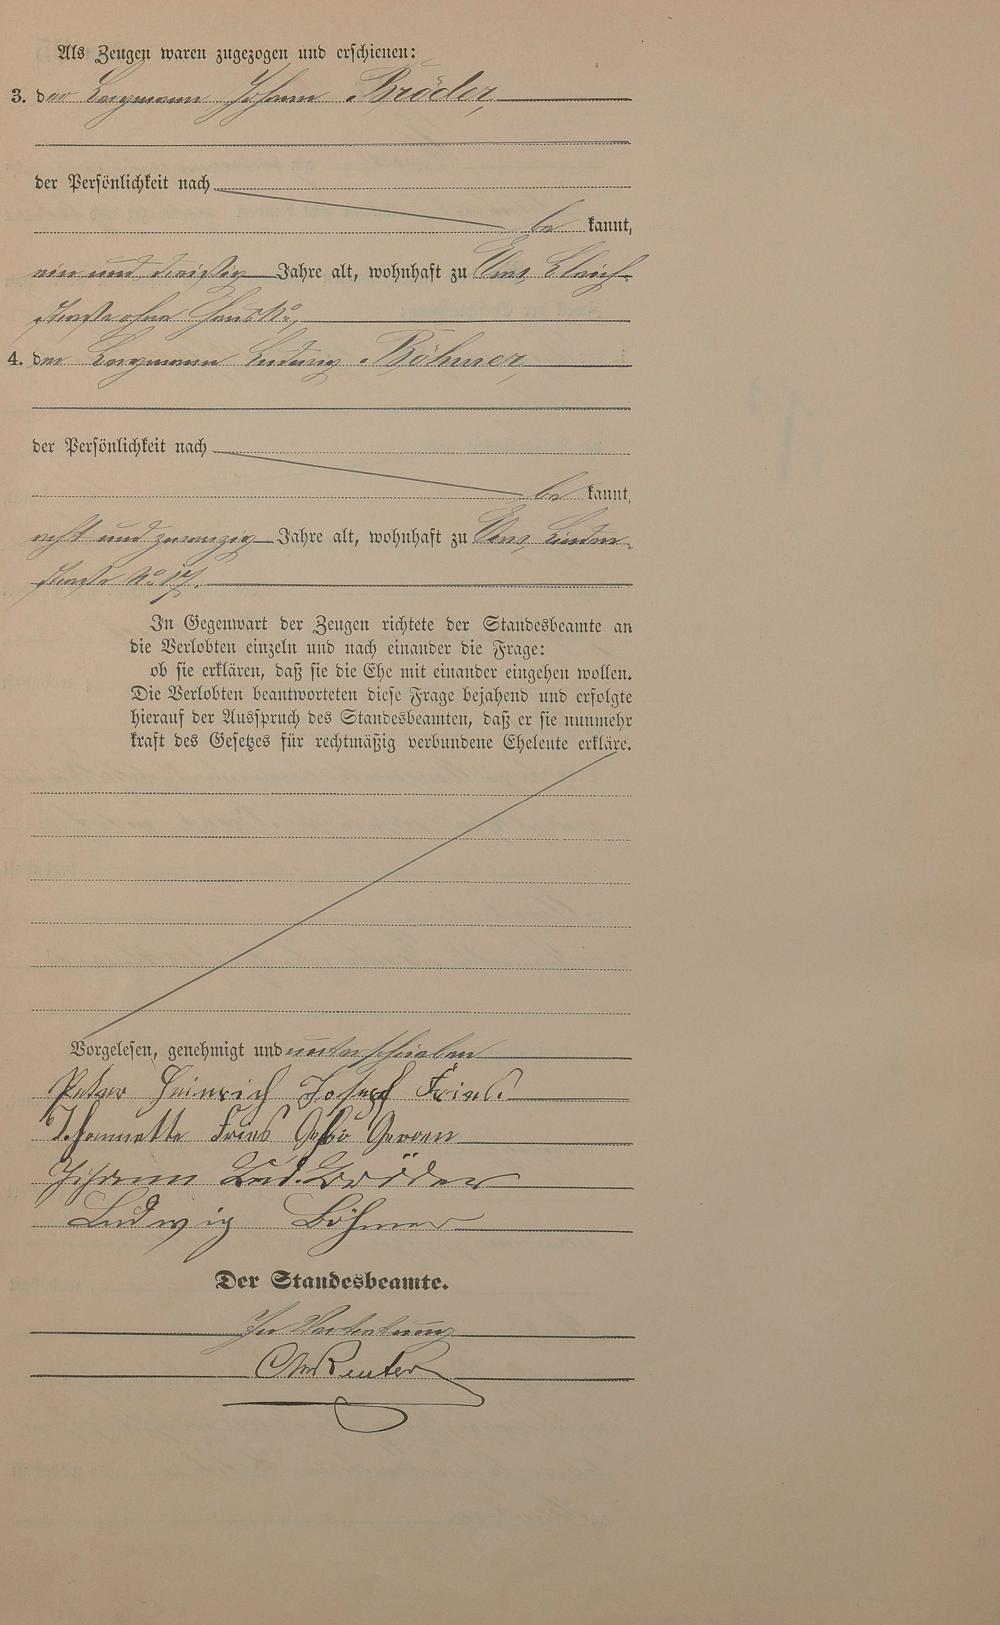 Als Zeugen waren zugezogen und erschienen:
3. der Bergmann Johann Bröder,
der Persönlichkeit nach
be kannt,
ein und dreißig Jahre alt, wohnhaft zu Ems, Bleich-
straße ohne Haus No,
4. der Bergmann Ludwig Böhmer,
der Persönlichkeit nach
be kannt,
acht und zwanzig Jahre alt, wohnhaft zu Ems, Linden-
straße No 17.
In Gegenwart der Zeugen richtete der Standesbeamte an
die Verlobten einzeln und nach einander die Frage:
ob sie erklären, daß sie die Ehe mit einander eingehen wollen.
Die Verlobten beantworteten diese Frage bejahend und erfolgte
hierauf der Ausspruch des Standesbeamten, daß er sie nunmehr
kraft des Gesetzes für rechtmäßig verbundene Eheleute erkläre.
Vorgelesen, genehmigt und unterschrieben
Peter Heinrich Joseph Fries.
Johannette Fries
Johann Lud. Bröder
Ludwig Böhmer
Der Standesbeamte.
In Vertretung
Reuter